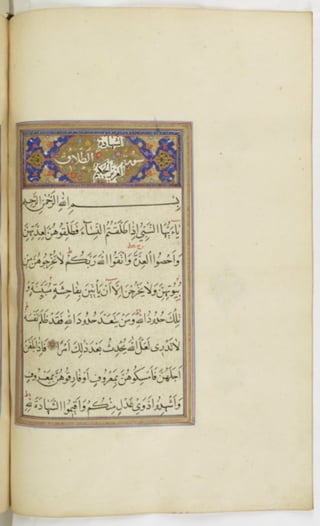 سورة الطلاق
بسم الله الرحمن الرحيم
يا أيها النبي إذا طلقتم النساء فطلقوهن لعدتهن
وأحصوا العدة واتقوا الله ربكم لا تخرجوهن من
بيوتهن ولا يخرجن إلا أن يأتين بفاحشة مبينة و
تلك حدود الله ومن يتعد حدود الله فقد ظلم نفسه
لا تدري لعل الله يحدث بعد ذلك أمرا فإذا بلغن
أجلهن فأمسكوهن بمعروف أو فارقوهن بمعروف
وأشهدوا ذوي عدل منكم وأقيموا الشهادة لله